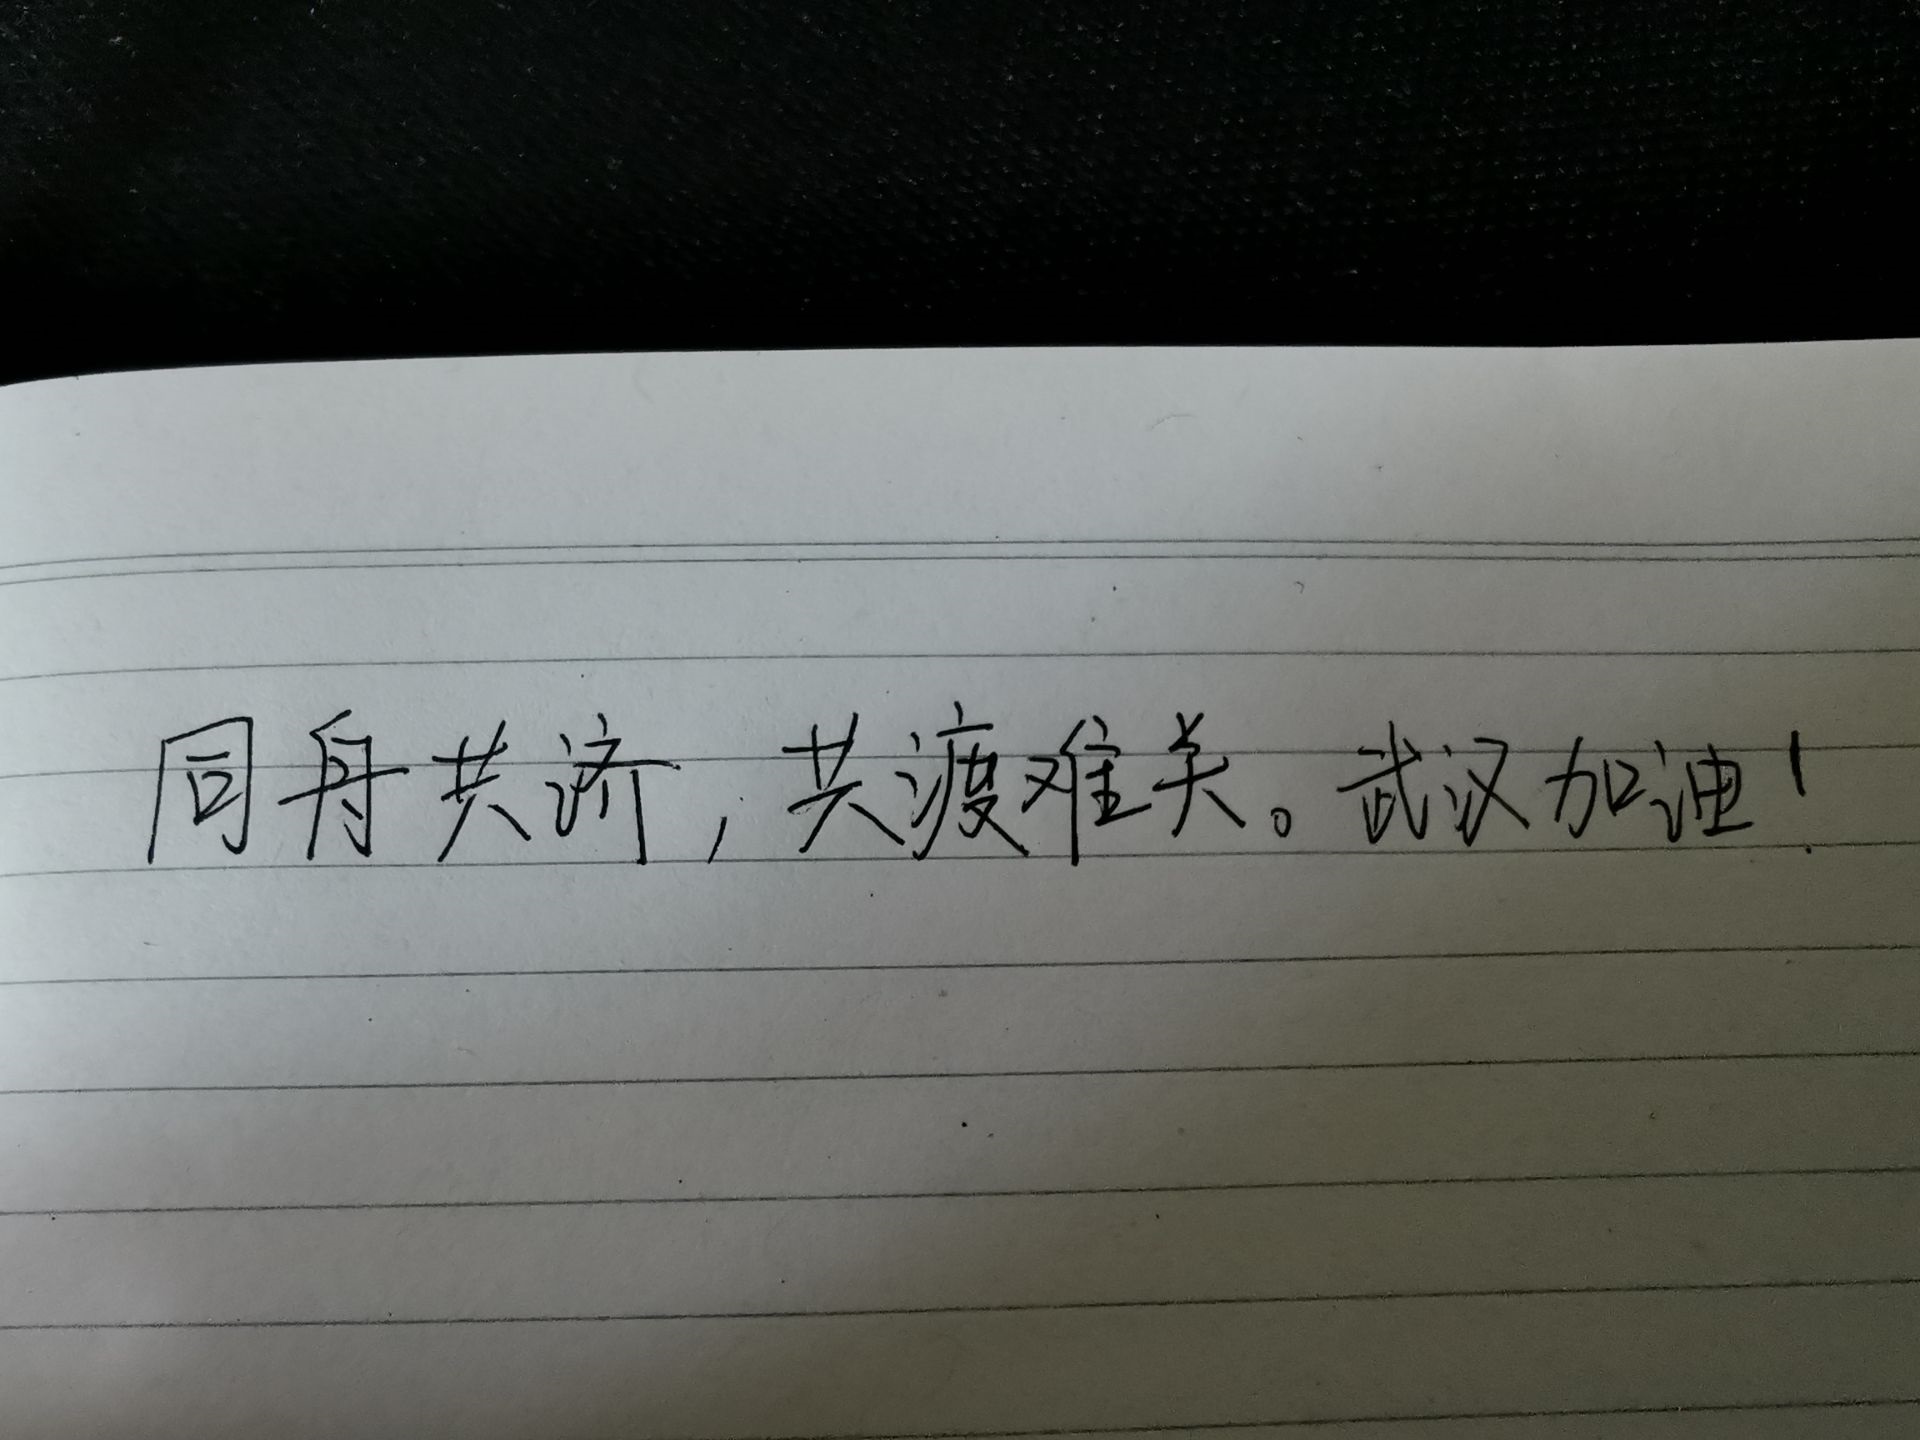 同舟共济，共渡难关。武汉加油！